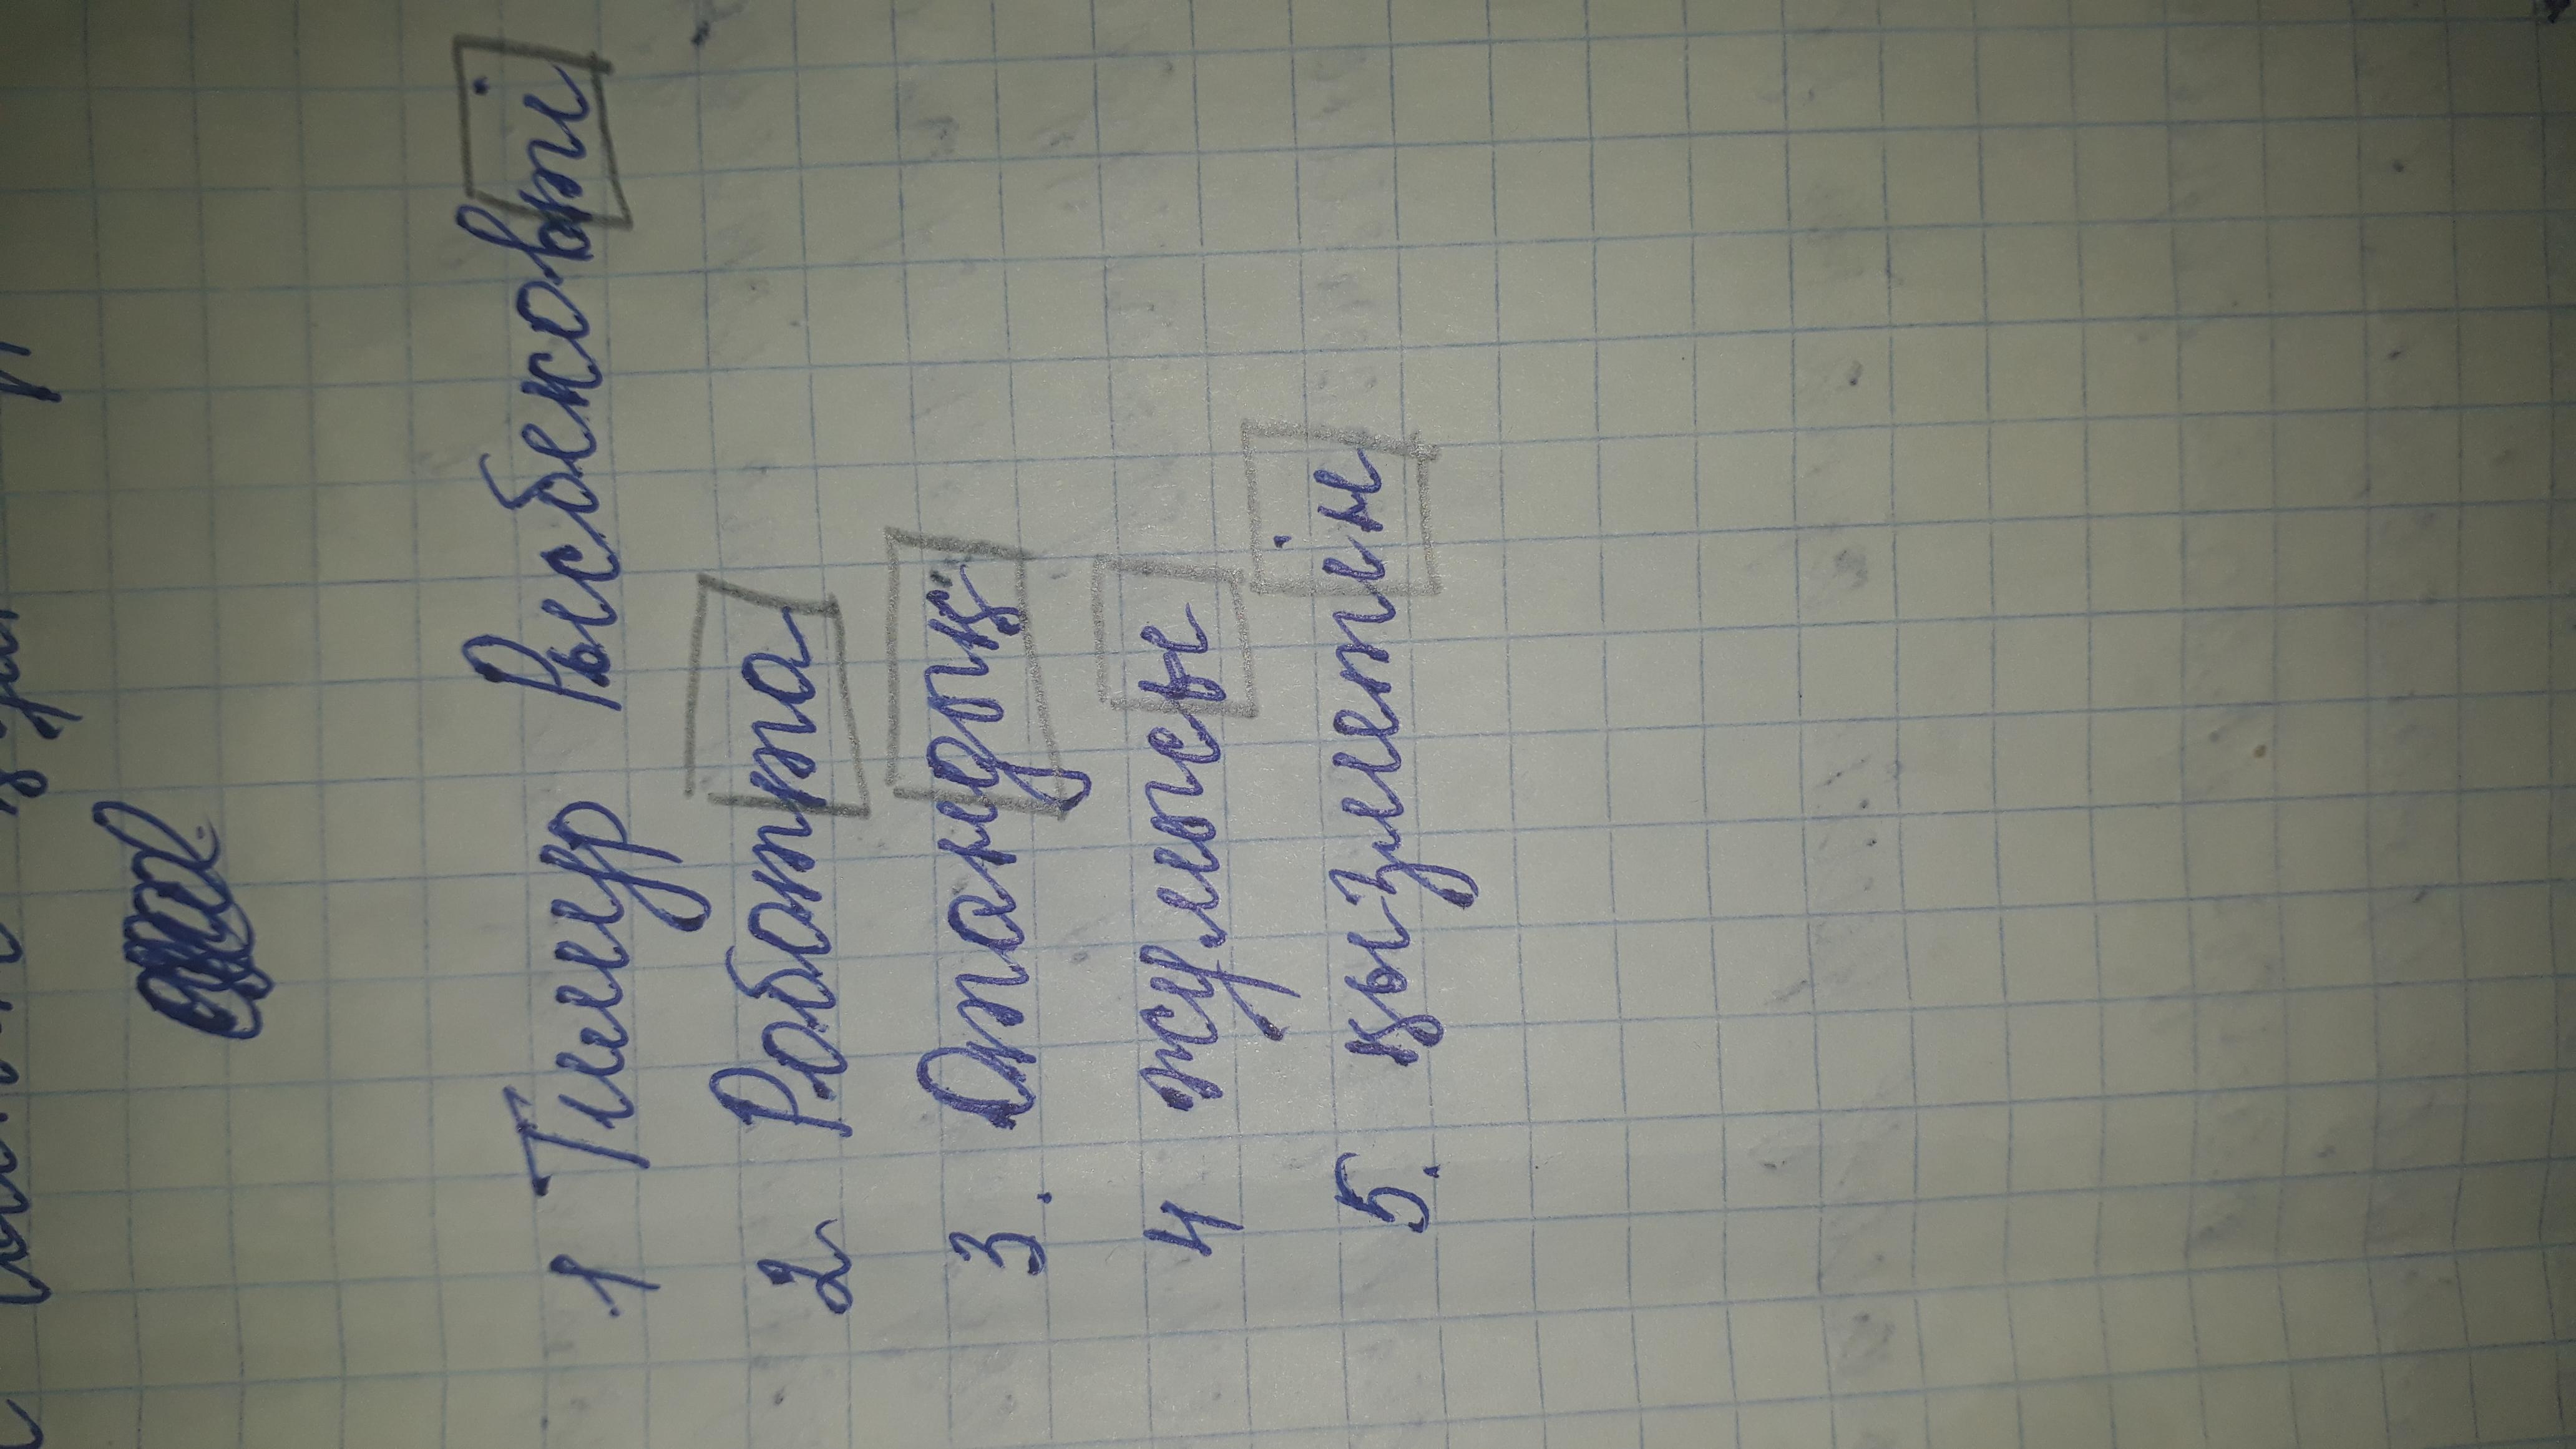 1 Тимур Рысбековті
2 Роботта
3. Отандық
4 жұмысы
5. қызметін